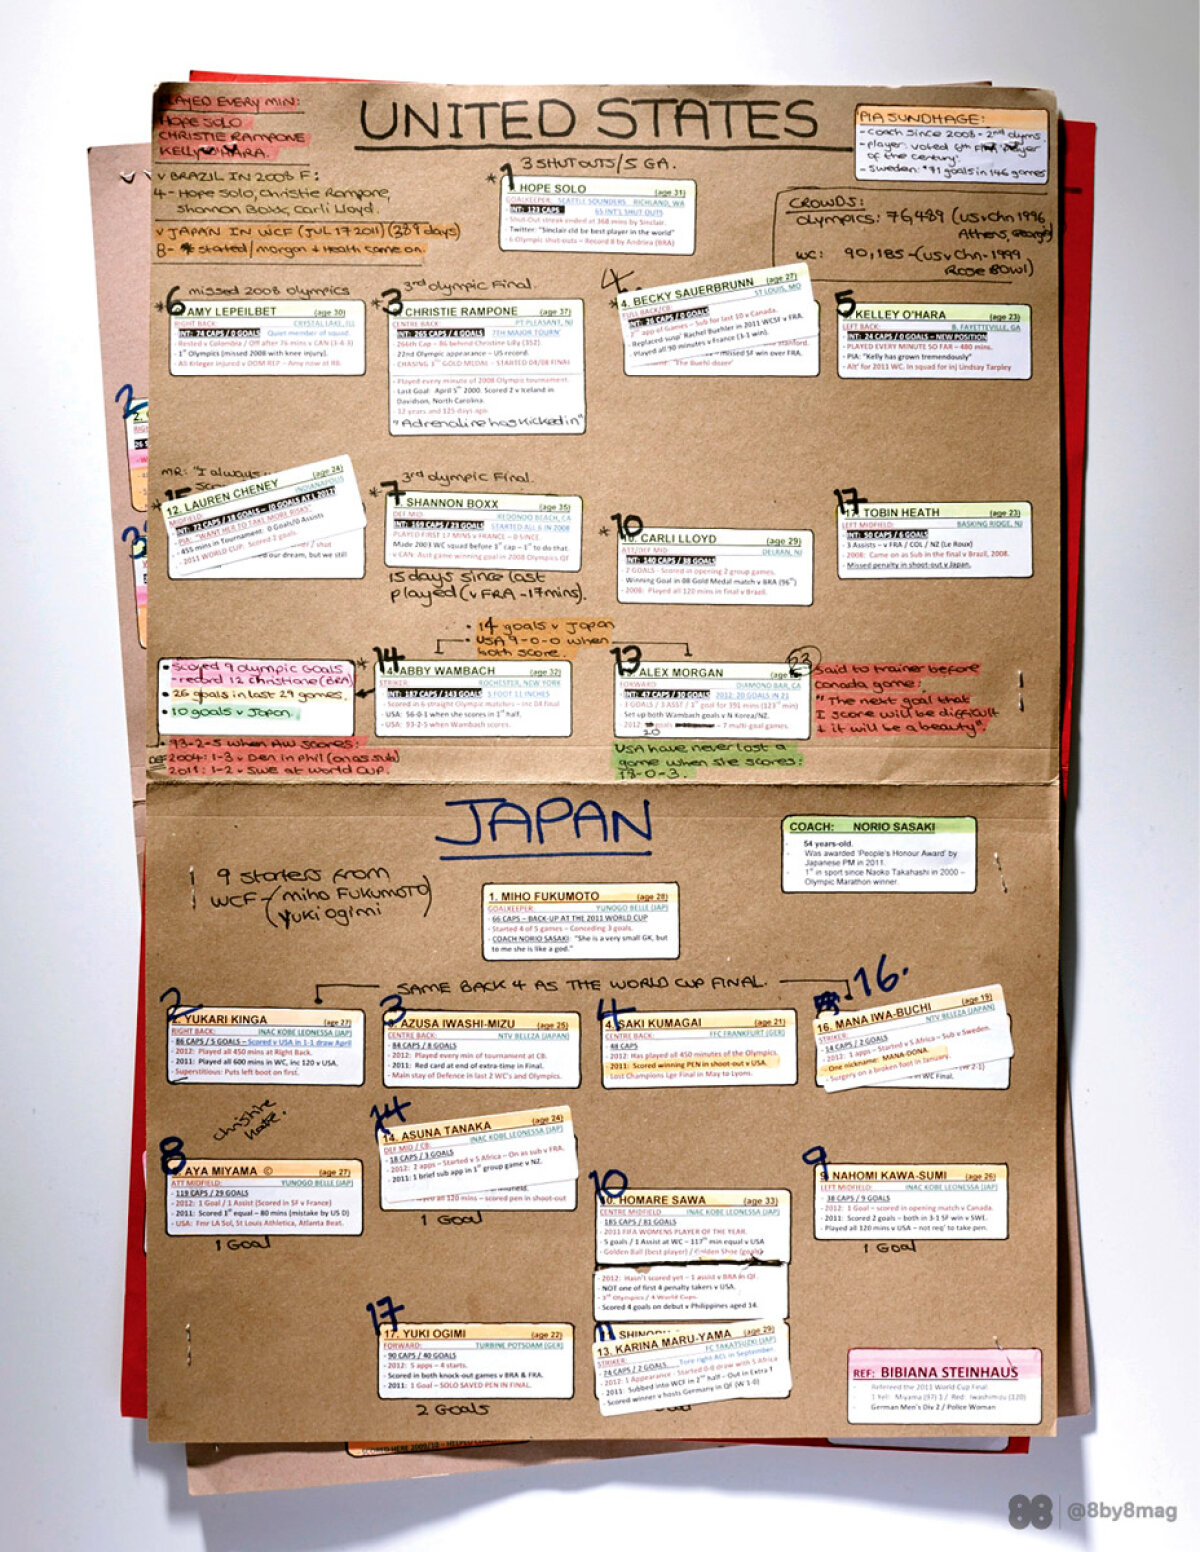 PLAYED EVERY MIN:
HOPE SOLO
CHRISTIE RAMPONE
KELLY O'HARA.
UNITED STATES
PIA SUNDHAGE:
- coach since 2008 - 2nd olyms.
- player: voted 6th FIFA player
of the century.
- Sweden: 71 goals in 146 games
v BRAZIL IN 2008 F:
4 - Hope Solo, Christie Rampone,
Shannon Boxx, Carli Lloyd.
v JAPAN IN WCF (JUL 17 2011) (389 days)
8 - started / morgan + Heath came on.
CROWDS:
Olympics: 76,489 (US v Chn 1996,
Athens, Georgia)
WC: 90,185 - (US v Chn - 1999
Rose BOWL)
3 SHUTOUTS / 5 GA.
* 1 HOPE SOLO (age 31)
GOALKEEPER: SEATTLE SOUNDERS RICHLAND, WA
INT: 123 CAPS 65 INT'L SHUT OUTS
- Shut-Out streak ended at 368 mins by Sinclair.
- Twitter: "Sinclair cld be best player in the world"
- 6 Olympic shut-outs - Record 8 by Andriea (BRA)
missed 2008 Olympics
* 6 AMY LEPEILBET (age 30)
RIGHT BACK: CRYSTAL LAKE, ILL
INT: 74 CAPS / 0 GOALS Quiet member of squad.
- Rested v Colombia / Off after 76 mins v CAN (3-4-3)
- 1st Olympics (missed 2008 with knee injury).
- Ali Krieger injured v DOM REP - Amy now at RB.
3rd Olympic Final.
* 3 CHRISTIE RAMPONE (age 37)
CENTRE BACK: PT PLEASANT, NJ
INT: 265 CAPS / 4 GOALS 7TH MAJOR TOURN'
- 266th Cap - 86 behind Christine Lilly (352).
- 22nd Olympic appearance - US record.
- CHASING 3rd GOLD MEDAL - STARTED 04/08 FINAL
- Played every minute of 2008 Olympic tournament.
- Last Goal: April 5th 2000. Scored 2 v Iceland in
Davidson, North Carolina.
- 12 years and 125 days ago.
"Adrenaline has kicked in"
4
4. BECKY SAUERBRUNN (age 27)
FULL BACK/CB: ST LOUIS, MO
INT: 26 CAPS / 0 GOALS
- app of Games - Sub for last 10 v Canada.
- Replaced 'susp' Rachel Buehler in 2011 WCSF v FRA.
- Played all 90 minutes v France (3-1 win).
missed SF win over FRA.
5 KELLEY O'HARA (age 23)
LEFT BACK: B. FAYETTEVILLE, GA
INT: 24 CAPS / 0 GOALS - NEW POSITION
- PLAYED EVERY MINUTE SO FAR - 480 mins.
- PIA: "Kelly has grown tremendously"
- Alt' for 2011 WC. In squad for inj Lindsay Tarpley
MR: "I always
* 15
12. LAUREN CHENEY (age 24)
MIDFIELD: INDIANAPOLIS
INT: 72 CAPS / 18 GOALS - 10 GOALS AT L 2012
- PIA: "WANT HER TO TAKE MORE RISKS"
- 455 mins in Tournament: 0 Goals/0 Assists
- 2011 WORLD CUP: Scored 2 goals.
our dream, but we still
3rd Olympic Final.
* 7 SHANNON BOXX (age 35)
DEF MID: REDONDO BEACH, CA
INT: 169 CAPS / 23 GOALS STARTED ALL 6 IN 2008
- PLAYED FIRST 17 MINS v FRANCE - 0 SINCE.
- Made 2003 WC squad before 1st cap - 1st to do that.
- v CAN: Asst game winning goal in 2008 Olympics QF
15 days since last
played (v FRA - 17 mins).
* 10 CARLI LLOYD (age 29)
ATT/DEF MID: DELRAN, NJ
INT: 140 CAPS / 36 GOALS
- 2 GOALS - Scored in opening 2 group games.
- Winning Goal in 08 Gold Medal match v BRA (96th)
- 2008: Played all 120 mins in final v Brazil.
17 TOBIN HEATH (age 23)
LEFT MIDFIELD: BASKING RIDGE, NJ
INT: 50 CAPS / 6 GOALS
- 3 Assists - v FRA / COL / NZ (Le Roux)
- 2008: Came on as Sub in the final v Brazil, 2008.
- Missed penalty in shoot-out v Japan.
• 14 goals v Japan
• USA 9-0-0 when
both score.
• Scored 9 Olympic GOALS
- record 12 Christiane (BRA)
• 26 goals in last 29 games.
• 10 goals v Japan.
14 ABBY WAMBACH (age 32)
STRIKER: ROCHESTER, NEW YORK
INT: 187 CAPS / 143 GOALS 5 FOOT 11 INCHES
- Scored in 6-straight Olympic matches - inc 04 final
- USA: 56-0-1 when she scores in 1st half.
- USA: 93-2-5 when Wambach scores.
13 ALEX MORGAN 23
FORWARD: DIAMOND BAR, CA
INT: 47 CAPS / 30 GOALS 2012: 20 GOALS IN 21
- 3 GOALS / 3 ASST / 1st goal for 391 mins (123rd min)
- Set up both Wambach goals v N Korea/NZ.
- 2012: 20 goals - 7 multi-goal games.
Said to trainer before
Canada game:
"The next goal that
I score will be difficult
+ it will be a beauty"
• 93-2-5 when AW scores:
DEF 2004: 1-3 v Den in Phil (on as sub)
2011: 1-2 v SWE at World Cup.
USA have never lost a
game when she scores:
18-0-3.
JAPAN
COACH: NORIO SASAKI
- 54 years-old.
- Was awarded 'People's Honour Award' by
Japanese PM in 2011.
- 1st in sport since Naoko Takahashi in 2000 -
Olympic Marathon winner.
9 starters from
WCF - (Miho FUKUMOTO)
(Yuki Ogimi
1. MIHO FUKUMOTO (age 28)
GOALKEEPER: YUNOGO BELLE (JAP)
- 66 CAPS - BACK-UP AT THE 2011 WORLD CUP
- Started 4 of 5 games - Conceding 3 goals.
- COACH NORIO SASAKI: "She is a very small GK, but
to me she is like a god."
SAME BACK 4 AS THE WORLD CUP FINAL.
2. YUKARI KINGA (age 27)
RIGHT BACK: INAC KOBE LEONESSA (JAP)
- 86 CAPS / 5 GOALS - Scored v USA in 1-1 draw April
- 2012: Played all 450 mins at Right Back.
- 2011: Played all 600 mins in WC, inc 120 v USA.
- Superstitious: Puts left boot on first.
3 AZUSA IWASHI-MIZU (age 25)
CENTRE BACK: NTV BELEZA (JAPAN)
- 84 CAPS / 8 GOALS
- 2012: Played every min of tournament at CB.
- 2011: Red card at end of extra-time in Final.
- Main stay of Defence in last 2 WC's and Olympics.
4
4. SAKI KUMAGAI (age 21)
CENTRE BACK: FFC FRANKFURT (GER)
- 48 CAPS
- 2012: Has played all 450 minutes of the Olympics.
- 2011: Scored winning PEN in shoot-out v USA.
- Lost Champions Lge Final in May to Lyons.
16.
16. MANA IWA-BUCHI (age 19)
STRIKER: NTV BELEZA (JAPAN)
- 14 CAPS / 2 GOALS
- 2012: 1 apps - Started v S Africa - Sub v Sweden.
- One nickname: MANA-DONA.
- Surgery on a broken foot in January.
in WC Final.
8 AYA MIYAMA © (age 27)
ATT MIDFIELD: YUNOGO BELLE (JAP)
- 119 CAPS / 29 GOALS
- 2012: 1 Goal / 1 Assist (Scored in SF v France)
- 2011: Scored 1st equal - 80 mins (mistake by US D)
- USA: Fmr LA Sol, St Louis Athletica, Atlanta Beat.
1 Goal
14
14. ASUNA TANAKA (age 24)
DEF MID / CB: INAC KOBE LEONESSA (JAP)
- 18 CAPS / 3 GOALS
- 2012: 2 apps - Started v S Africa - On as sub v FRA.
- 2011: 1 brief sub app in 1st group game v NZ.
all 120 mins - scored pen in shoot-out
1 Goal
10 HOMARE SAWA (age 33)
CENTRE MIDFIELD INAC KOBE LEONESSA (JAP)
- 185 CAPS / 81 GOALS
- 2011 FIFA WOMENS PLAYER OF THE YEAR.
- 5 goals / 1 Assist at WC - 117th min equal v USA
- Golden Ball (best player) / Golden Shoe (goals)
- 2012: Hasn't scored yet - 1 assist v BRA in QF.
- NOT one of first 4 penalty takers v USA.
- 3rd Olympics / 4 World Cups.
- Scored 4 goals on debut v Philippines aged 14.
9 NAHOMI KAWA-SUMI (age 26)
LEFT MIDFIELD: INAC KOBE LEONESSA (JAP)
- 38 CAPS / 9 GOALS
- 2012: 1 Goal - scored in opening match v Canada.
- 2011: Scored 2 goals - both in 3-1 SF win v SWE.
- Played all 120 mins v USA - not req' to take pen.
1 Goal
17
17. YUKI OGIMI (age 22)
FORWARD: TURBINE POTSDAM (GER)
- 90 CAPS / 40 GOALS
- 2012: 5 apps - 4 starts.
- Scored in both knock-out games v BRA & FRA.
- 2011: 1 Goal - SOLO SAVED PEN IN FINAL.
2 Goals
11
13. KARINA MARU-YAMA (age 29)
STRIKER: FC TAKATSUKI (JAP)
- 24 CAPS / 2 GOALS Tore right ACL in September.
- 2012: 1 Appearance - Started 0-0 draw with S Africa
- 2011: Subbed into WCF in 2nd half - Out in Extra T
- Scored winner v hosts Germany in QF (W 1-0)
REF: BIBIANA STEINHAUS
- Refereed the 2011 World Cup Final.
- 1 Yell: Miyama (97) 1 / Red: Iwashimizu (120)
- German Men's Div 2 / Police Woman
@8by8mag